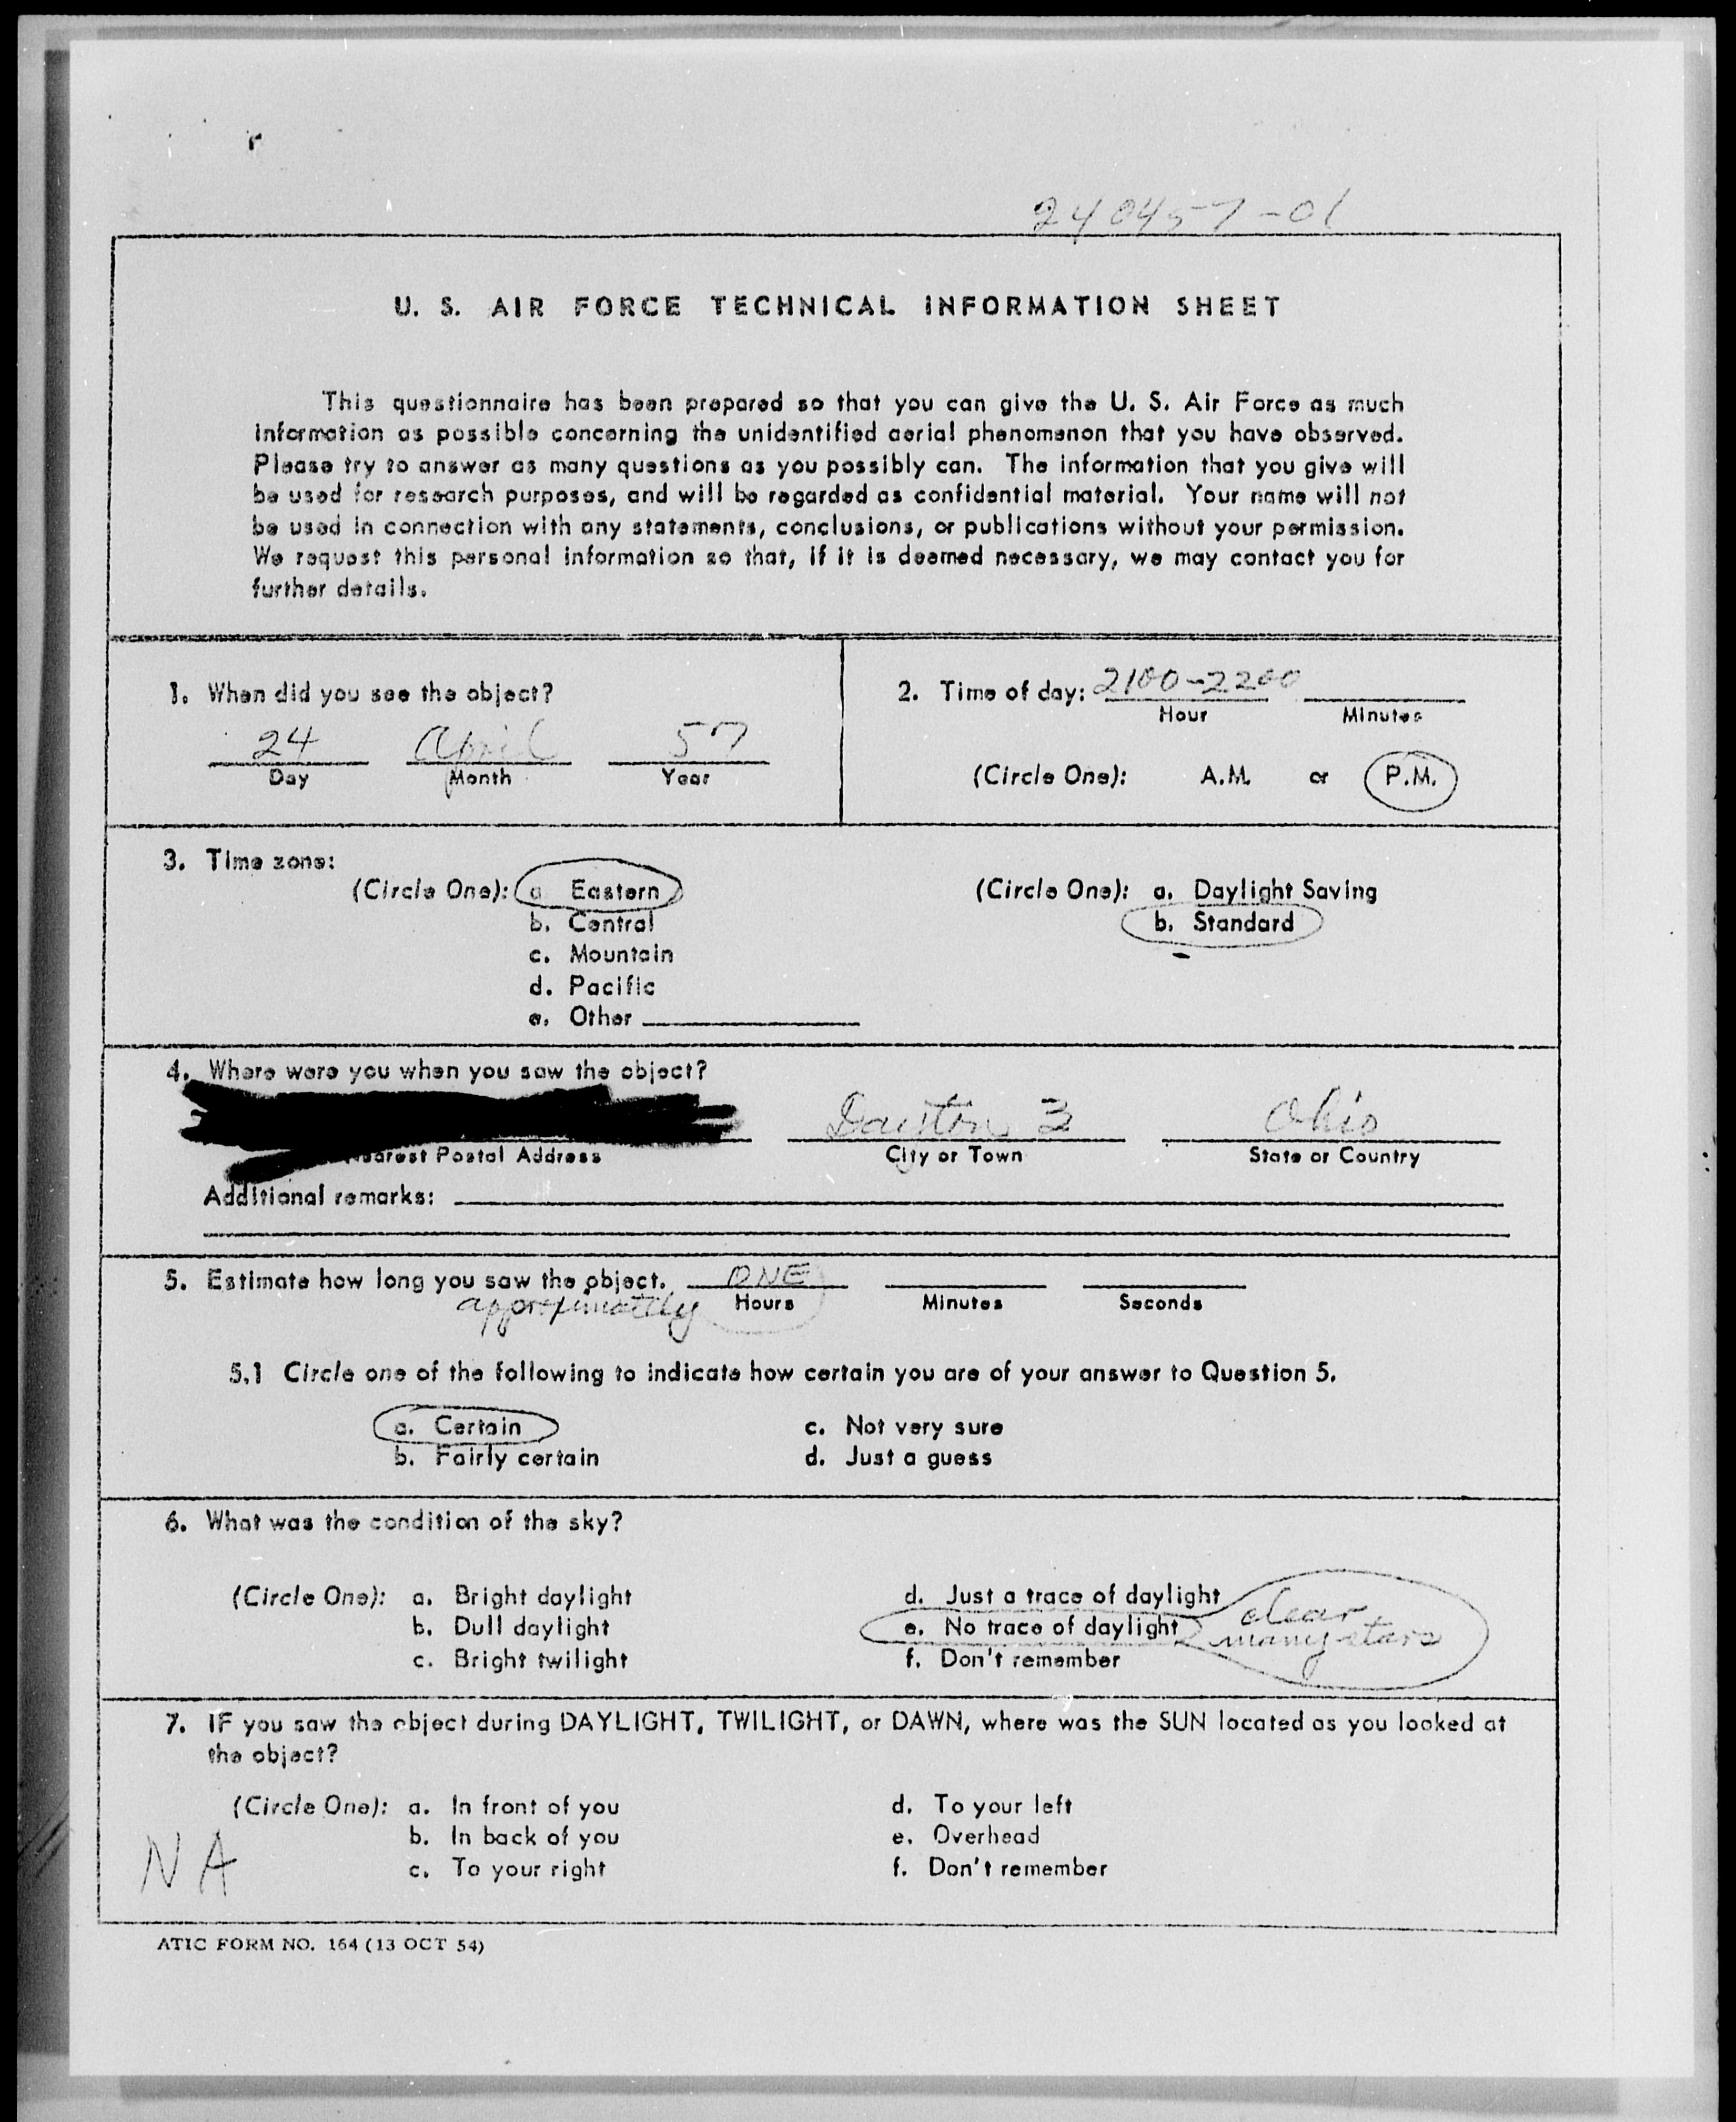 240457-01
U. S. AIR FORCE TECHNICAL INFORMATION SHEET
This questionnaire has been prepared so that you can give the U. S. Air Force as much
information as possible concerning the unidentified aerial phenomenon that you have observed.
Please try to answer as many questions as you possibly can. The information that you give will
be used for research purposes, and will be regarded as confidential material. Your name will not
be used in connection with any statements, conclusions, or publications without your permission.
We request this personal information so that, if it is deemed necessary, we may contact you for
further details.
1. When did you see the object?
24 April 57
Day Month Year
2. Time of day: 2100-2200
Hour Minutes
(Circle One): A.M. or P.M.
3. Time zone:
(Circle One): a. Eastern
b. Central
c. Mountain
d. Pacific
e. Other
(Circle One): a. Daylight Saving
b. Standard
4. Where were you when you saw the object?
Dayton 3 Ohio
Nearest Postal Address City or Town State or Country
Additional remarks:
5. Estimate how long you saw the object. ONE
approximately Hours Minutes Seconds
5.1 Circle one of the following to indicate how certain you are of your answer to Question 5.
a. Certain c. Not very sure
b. Fairly certain d. Just a guess
6. What was the condition of the sky?
(Circle One): a. Bright daylight
b. Dull daylight
c. Bright twilight
d. Just a trace of daylight
e. No trace of daylight
f. Don't remember
clear
many stars
7. IF you saw the object during DAYLIGHT, TWILIGHT, or DAWN, where was the SUN located as you looked at
the object?
(Circle One): a. In front of you
b. In back of you
c. To your right
d. To your left
e. Overhead
f. Don't remember
NA
ATIC FORM NO. 164 (13 OCT 54)